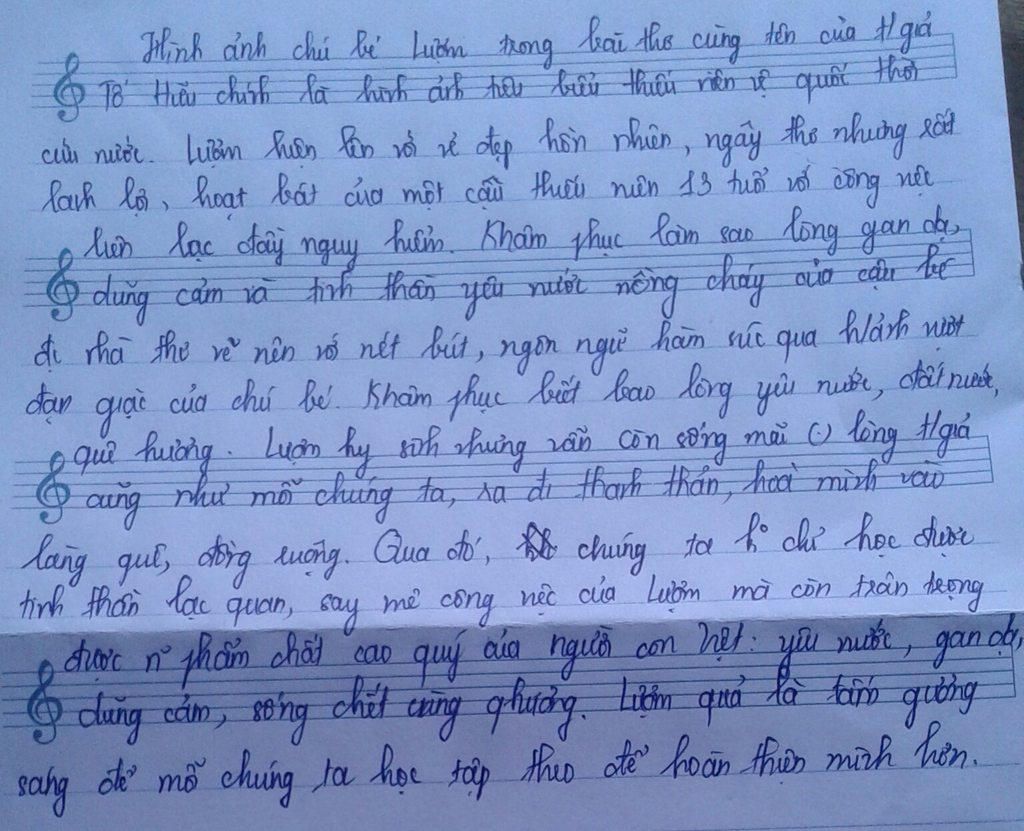 Hình ảnh chú bé Lượm trong bài thơ cùng tên của t/giả
Tố Hữu chính là hình ảnh tiêu biểu thiếu niên vệ quốc thời
cứu nước. Lượm hiện lên với vẻ đẹp hồn nhiên, ngây thơ nhưng rất
lanh lợi, hoạt bát của một cậu thiếu niên 13 tuổi với công việc
liên lạc đầy nguy hiểm. Khâm phục làm sao lòng gan dạ,
dũng cảm và tinh thần yêu nước nồng cháy của cậu bé
đc nhà thơ vẽ nên với nét bút, ngôn ngữ hàm súc qua h/ảnh vượt
đạn giặc của chú bé. Khâm phục biết bao lòng yêu nước, đất nước,
quê hương. Lượm hy sinh nhưng vẫn còn sống mãi (.) lòng t/giả
cũng như mỗi chúng ta, ra đi thanh thản, hoà mình vào
làng quê, đồng ruộng. Qua đó, chúng ta ko chỉ học được
tinh thần lạc quan, say mê công việc của Lượm mà còn trân trọng
được n~ phẩm chất cao quý của người con Việt: yêu nước, gan dạ,
dũng cảm, sống chết cùng qhương. Lượm quả là tấm gương
sáng để mỗi chúng ta học tập theo để hoàn thiện mình hơn.